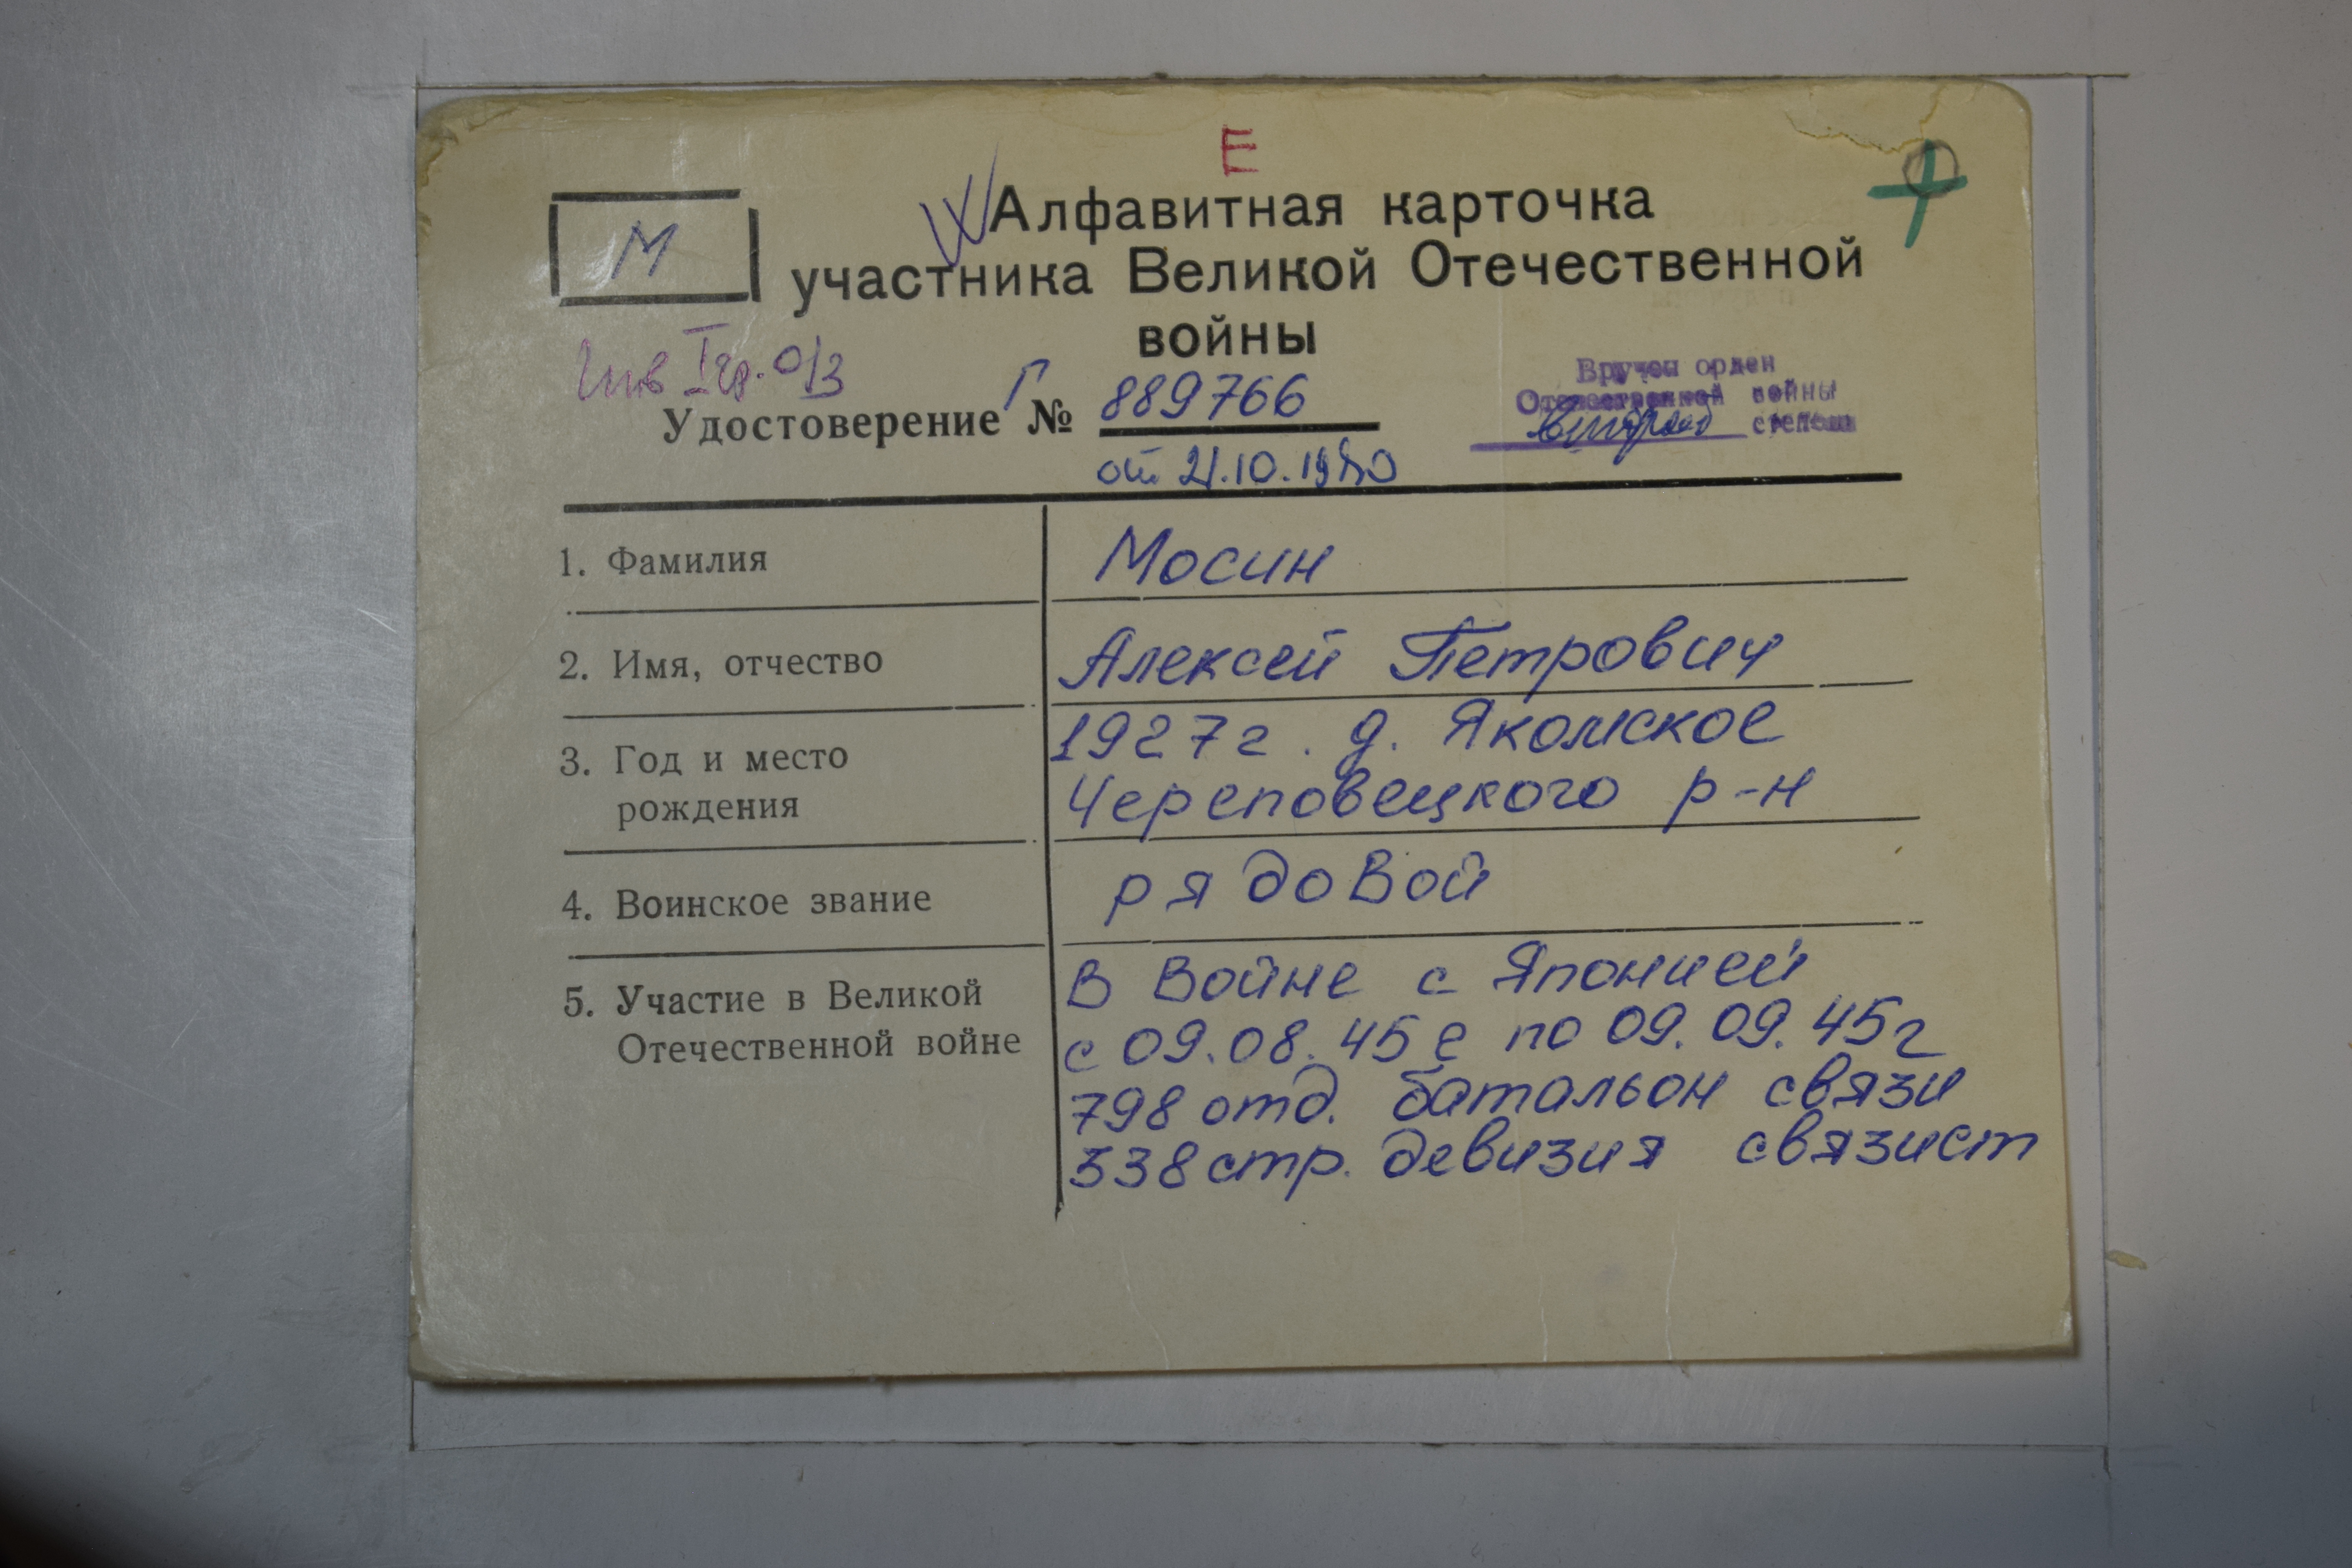 Е
Алфавитная карточка
М
участника Великой Отечественной
войны
Инв I гр. о/з
Вручен орден
Отечественной войны
второй степени
Удостоверение Г № 889766
от 21.10.1980
1. Фамилия Мосин
2. Имя, отчество Алексей Петрович
3. Год и место 1927г. д. Якомское
рождения Череповецкого р-н
4. Воинское звание рядовой
5. Участие в Великой В Войне с Японией
Отечественной войне с 09.08.45г по 09.09.45г
798 отд. батальон связи
338 стр. девизия связист